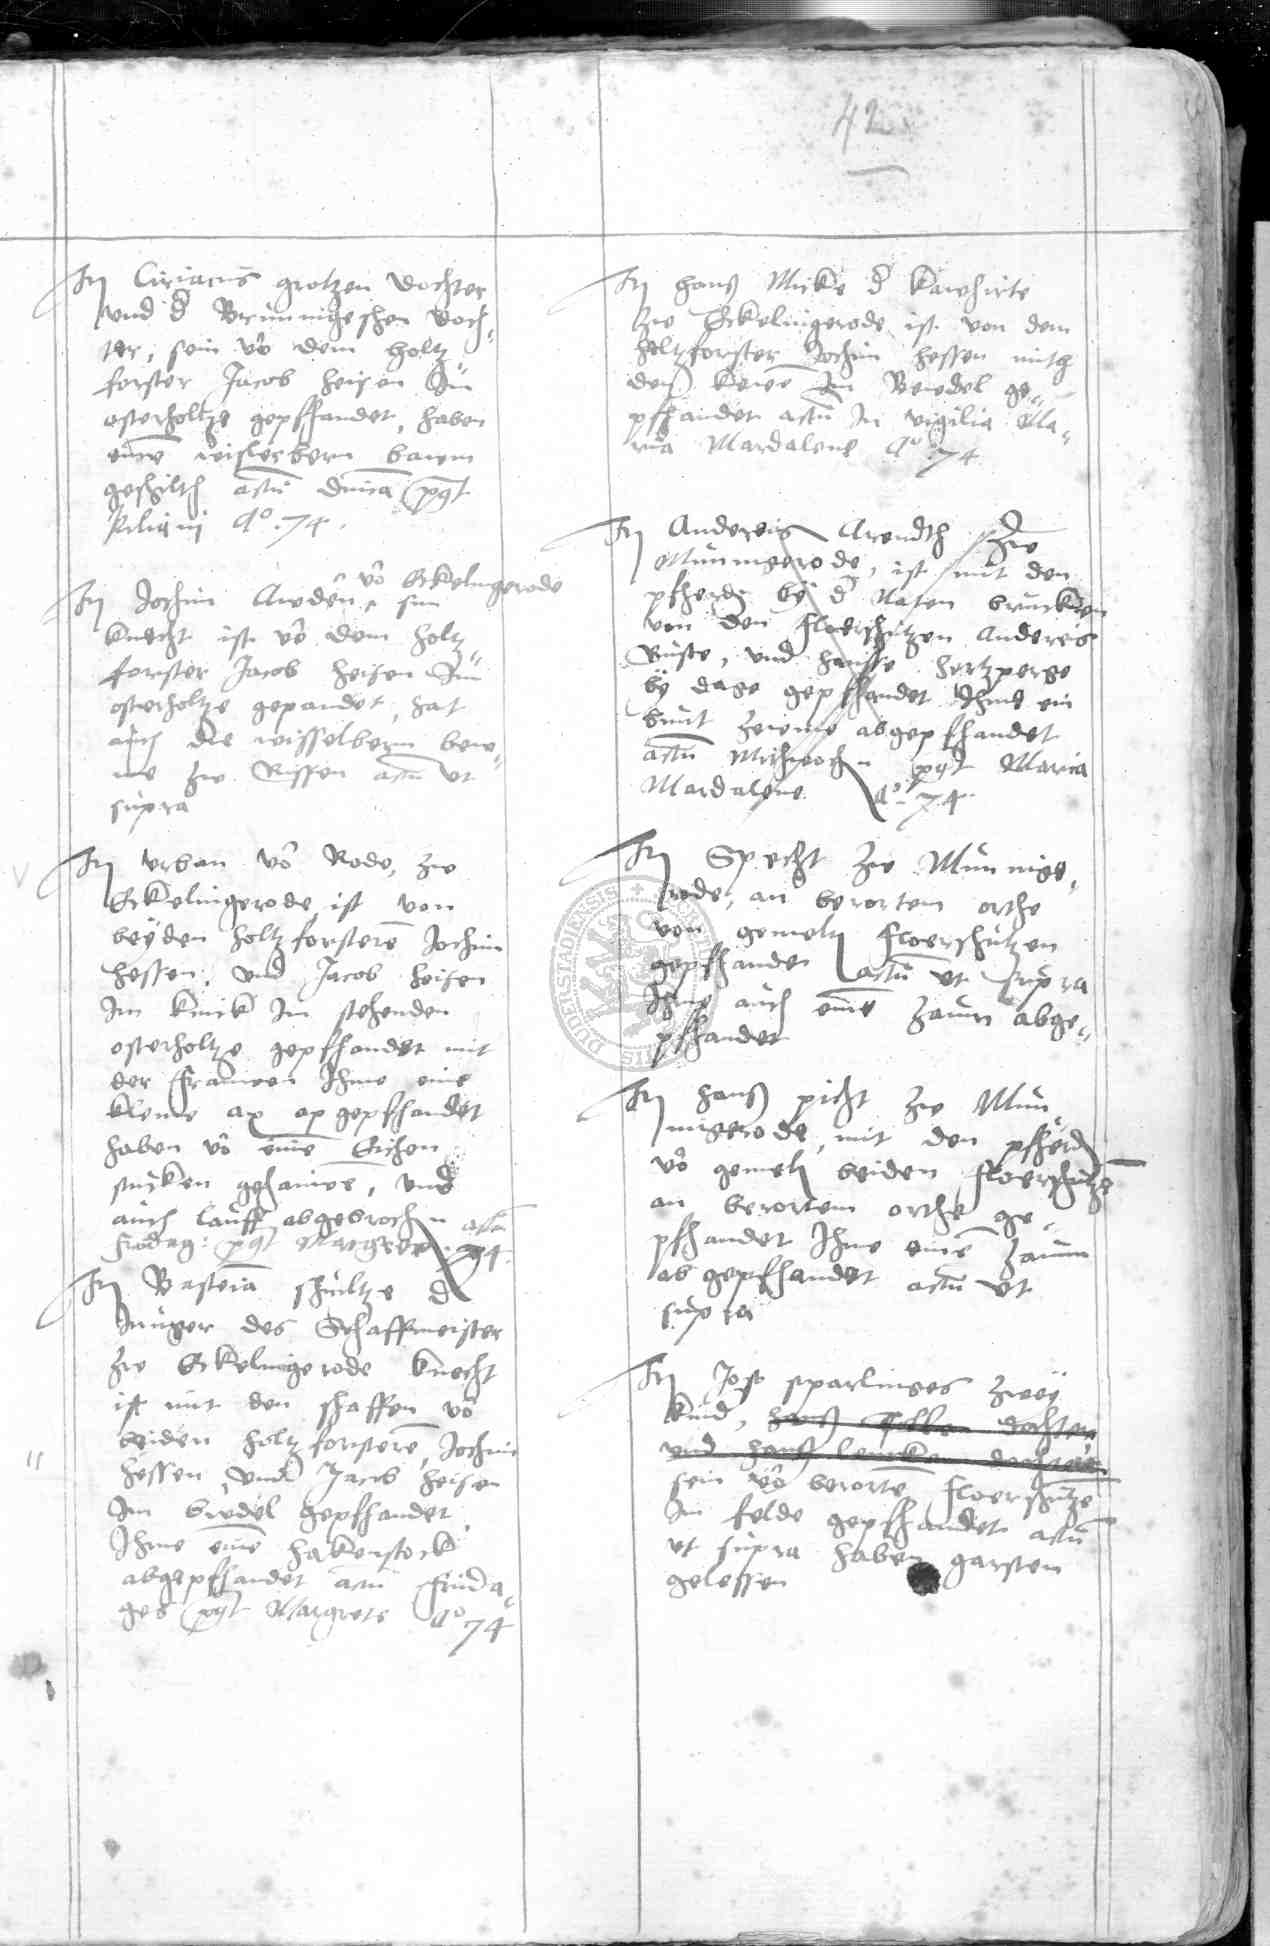 42
It Ciriacus grotzen dochter
und d Brunnigeschen doch,,
ter, sein vō dem holtz
forster Jacob heisen Im
osterholtze gepfhandet, haben
eine wisselbern bawm
geschilth actū dnica pgt
kiliani Ao . 74 .
It Jochim Aredn, vō Ekelingerode sin
knecht ist vō dem holtz,,
forster Jacob heisen Im
osterholtze gepandet, hat
auch die wisselbern baw,,
me zw Rissen actū ut
supra
It urban vō Rode, zw
Ekelingerode ist von
beyden holtzforsterē Jochim
hessen, und Jacob heisen
Im knick In stehenden
osterholtze gepfhandet mit
der frawen Ihme eine
kleine ax ap gepfhandet
haben vō eine Eichen
stucken gehawē, und
auch lauff abgebrochen actū
fridag: pgt Margret . 74
It Bastian schultze d
Junger des Schaffmeister
zw Ekelingerode knecht
ist mit den schaffen vō
beiden holtzforsterē, Jochim
hessen, und Jacob heisen
Im bredel gepfhandet
Ihme eine hakenstock
abgepfhandet actū frida,,
ges pgt Margrete Ao 74
It hanß Micke d kawhirte
zw Ekelingerode ist von dem
holtzforster Jochim hessen mith
den kewe In Bredel ge,,
pfhandet actū In vigilia Ma,,
ria Mardalene Ao 74
It Andereis Arendth zw
Munnigerode, ist mit den
pfherdē by d Naten brucken
von den floerschutzen Andereis
Buste, und hanße hertzperge
by dage gepfhandet Ihme ein
bunt zewme abgepfhandet
actū Mithwochen pgt Maria
Mardalene Ao 74
It Specht zw Munnige,
rode, an berortem orthe
von gemelt floerschutzen
gepfhandet actū ut supra
Ihme auch eine zawm abge,,
pfhandet
It hanß picht zw Mun,
nigerode, mit den pfherdē
vō gemelt beiden floerschutzē
an berortem orthe ge,
pfhandet Ihme eine zawm
abgepfhandet actū ut
supra
It Jost sparlinges zwey
kind, hanß dochter,
und hanß dochter
sein vō berortē floerschutzē
Im felde gepfhandet actū
ut supra haben garsten
gelessen